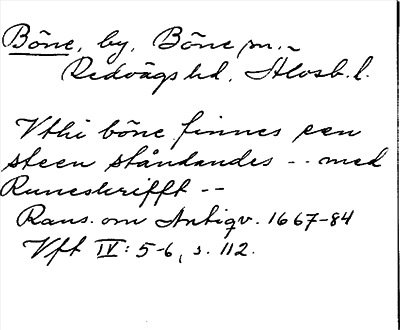 Böne, by, Böne sn.
Redvägs hd, Älvsb. l.
Vthi böne finnes een
steen ståndandes -- med
Runeskrifft --
Rans. om Antiqv. 1667-84
Vft IV: 5-6, s. 112.